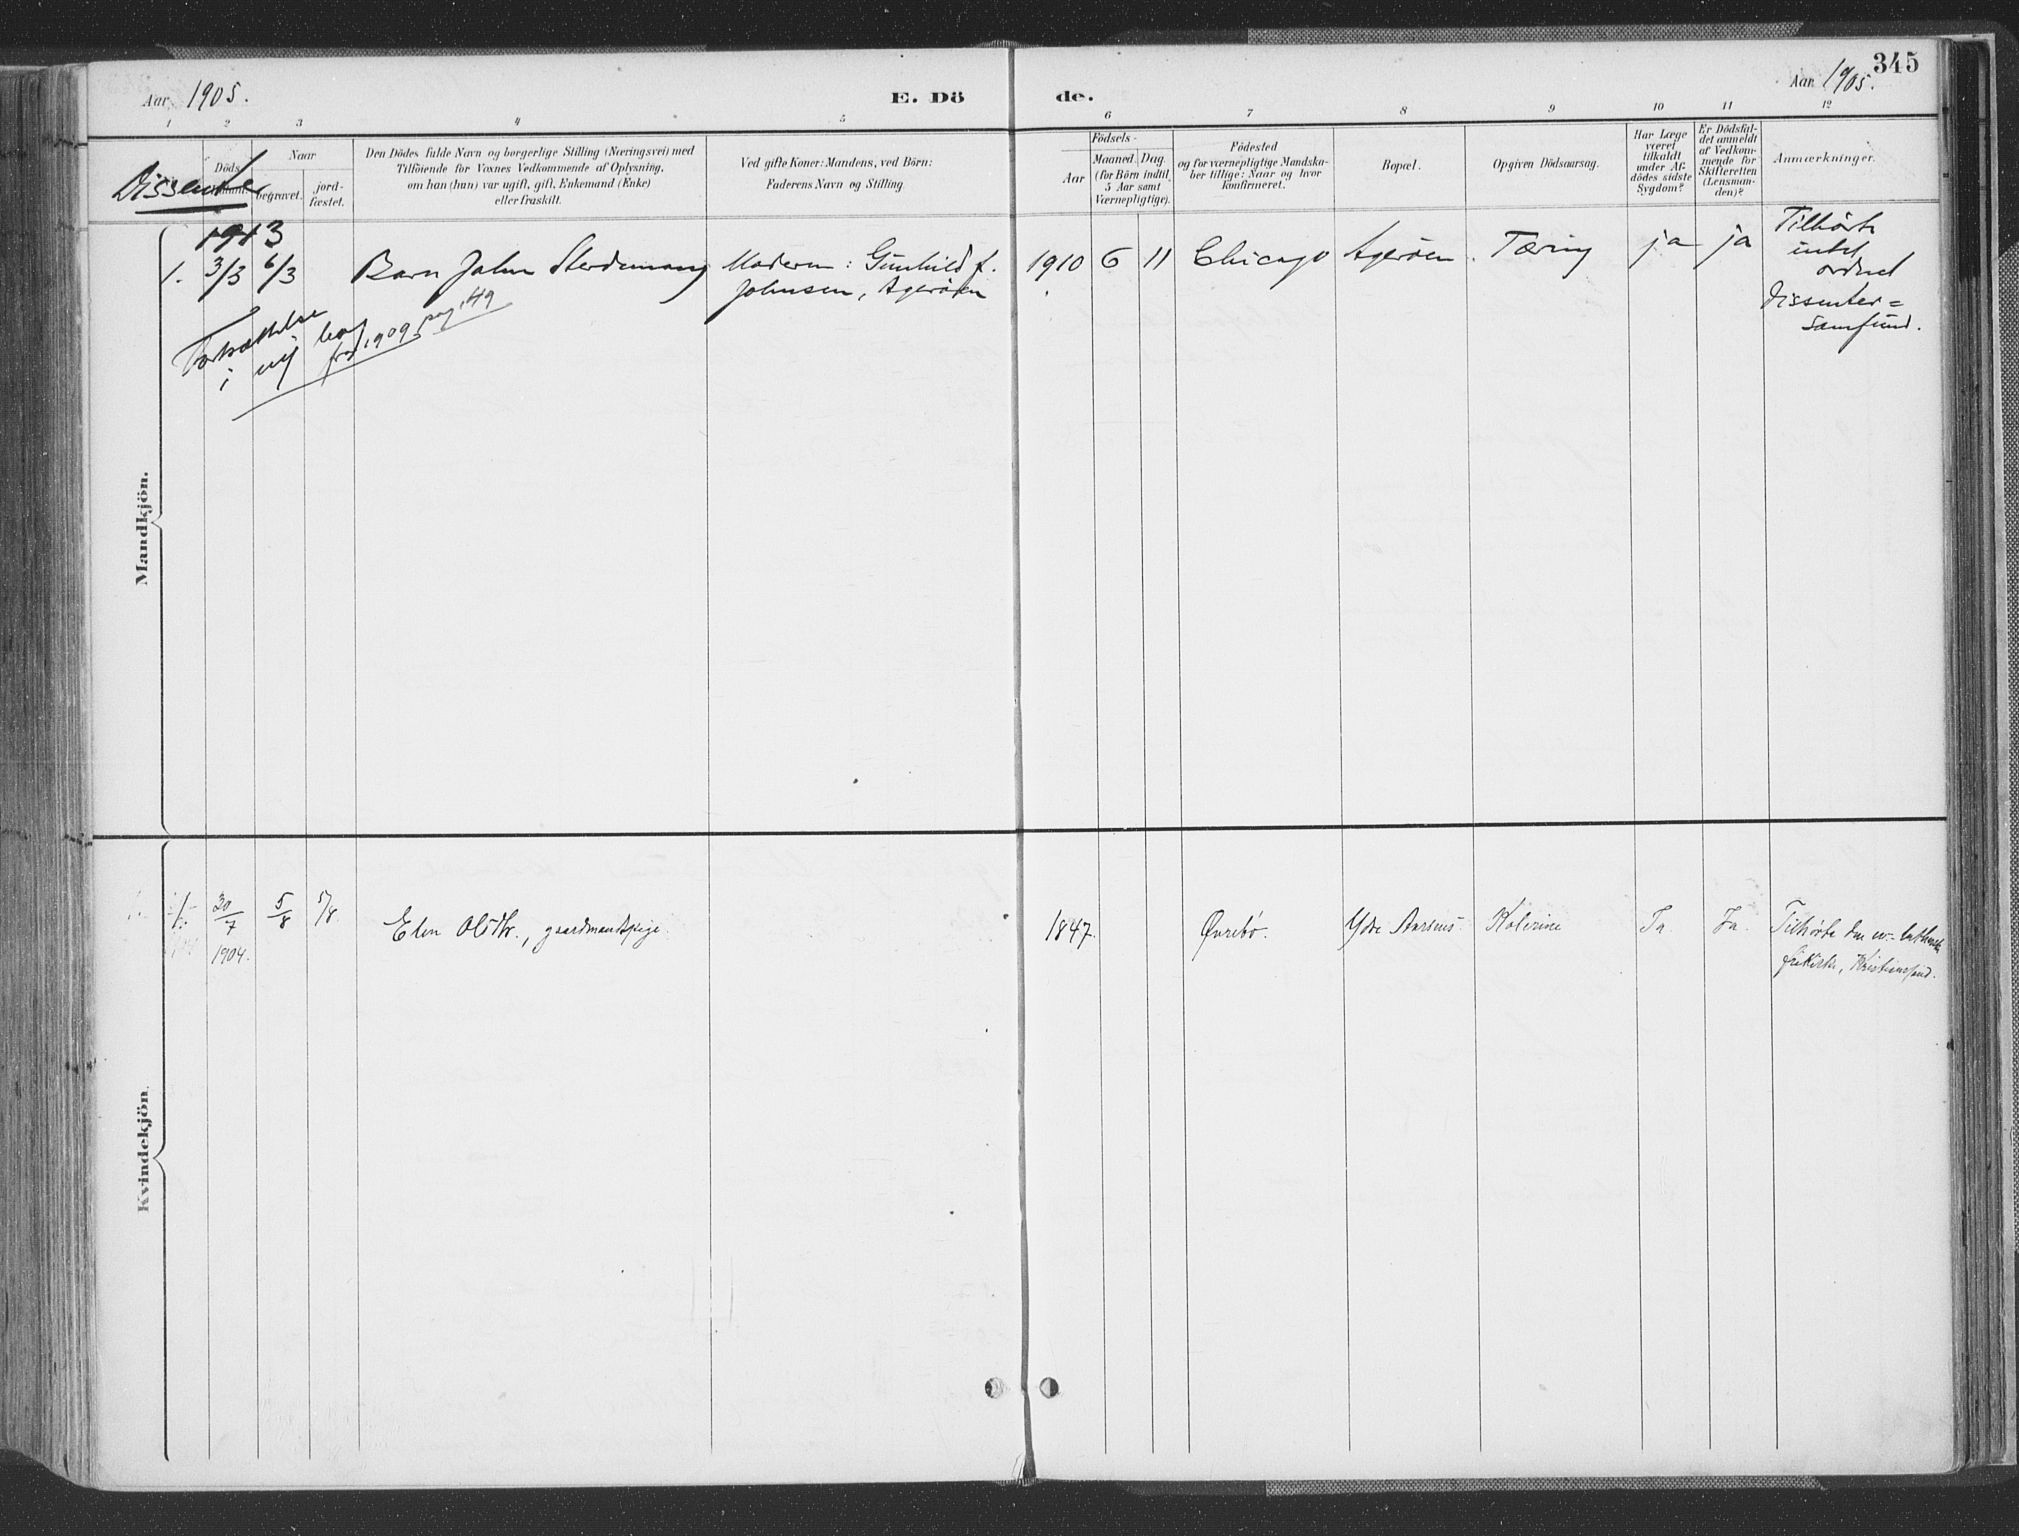 345
Aar 1905.
E. Dö
de.
Aar 1905.
1 2 3 4 5 6 7 8 9 10 11 12
Dissenter
Döds
Naar
begravet.
jord-
fæstet.
Den Dödes fulde Navn og borgerlige Stilling (Næringsvei) med
Tilföiende for Voxnes Vedkommende af Oplysning,
om han (hun) var ugift, gift, Enkemand (Enke)
eller fraskilt.
Ved gifte Koner: Mandens, ved Börn:
Faderens Navn og Stilling.
Födsels-
Aar
Maaned. Dag.
(for Börn indtil
5 Aar samt
Værnepligtige).
Födested
og for værnepligtige Mandska-
ber tillige: Naar og hvor
konfirmeret.
Bopæl.
Opgiven Dödsaarsag.
Har Læge
været
tilkaldt
under Af-
dödes sidste
Sygdom?
Er Dödsfal-
det anmeldt
af Vedkom-
mende for
Skifteretten
(Lensman-
den)?
Anmærkninger.
Mandkjön.
1913
1. 3/3 6/3 Barn John Moderen: Gunhild f. 1910 6 11 Chicago Agerøen. Tæring ja ja Tilhørte
Johnsen, Agerøen
intet
ordnet
Dissenter=
samfund.
Fortsættelse
i ny bog
fra 1909 pag. 149
Kvindekjön.
1. 30/7 5/8 5/8. Elen Olsdtr., gaardmandspige 1847. Øvrebø. Ydre Aarsnes. Ja. Ja. Tilhørte den ev.-luthersk
1904.
frikirke, Kristianssand.